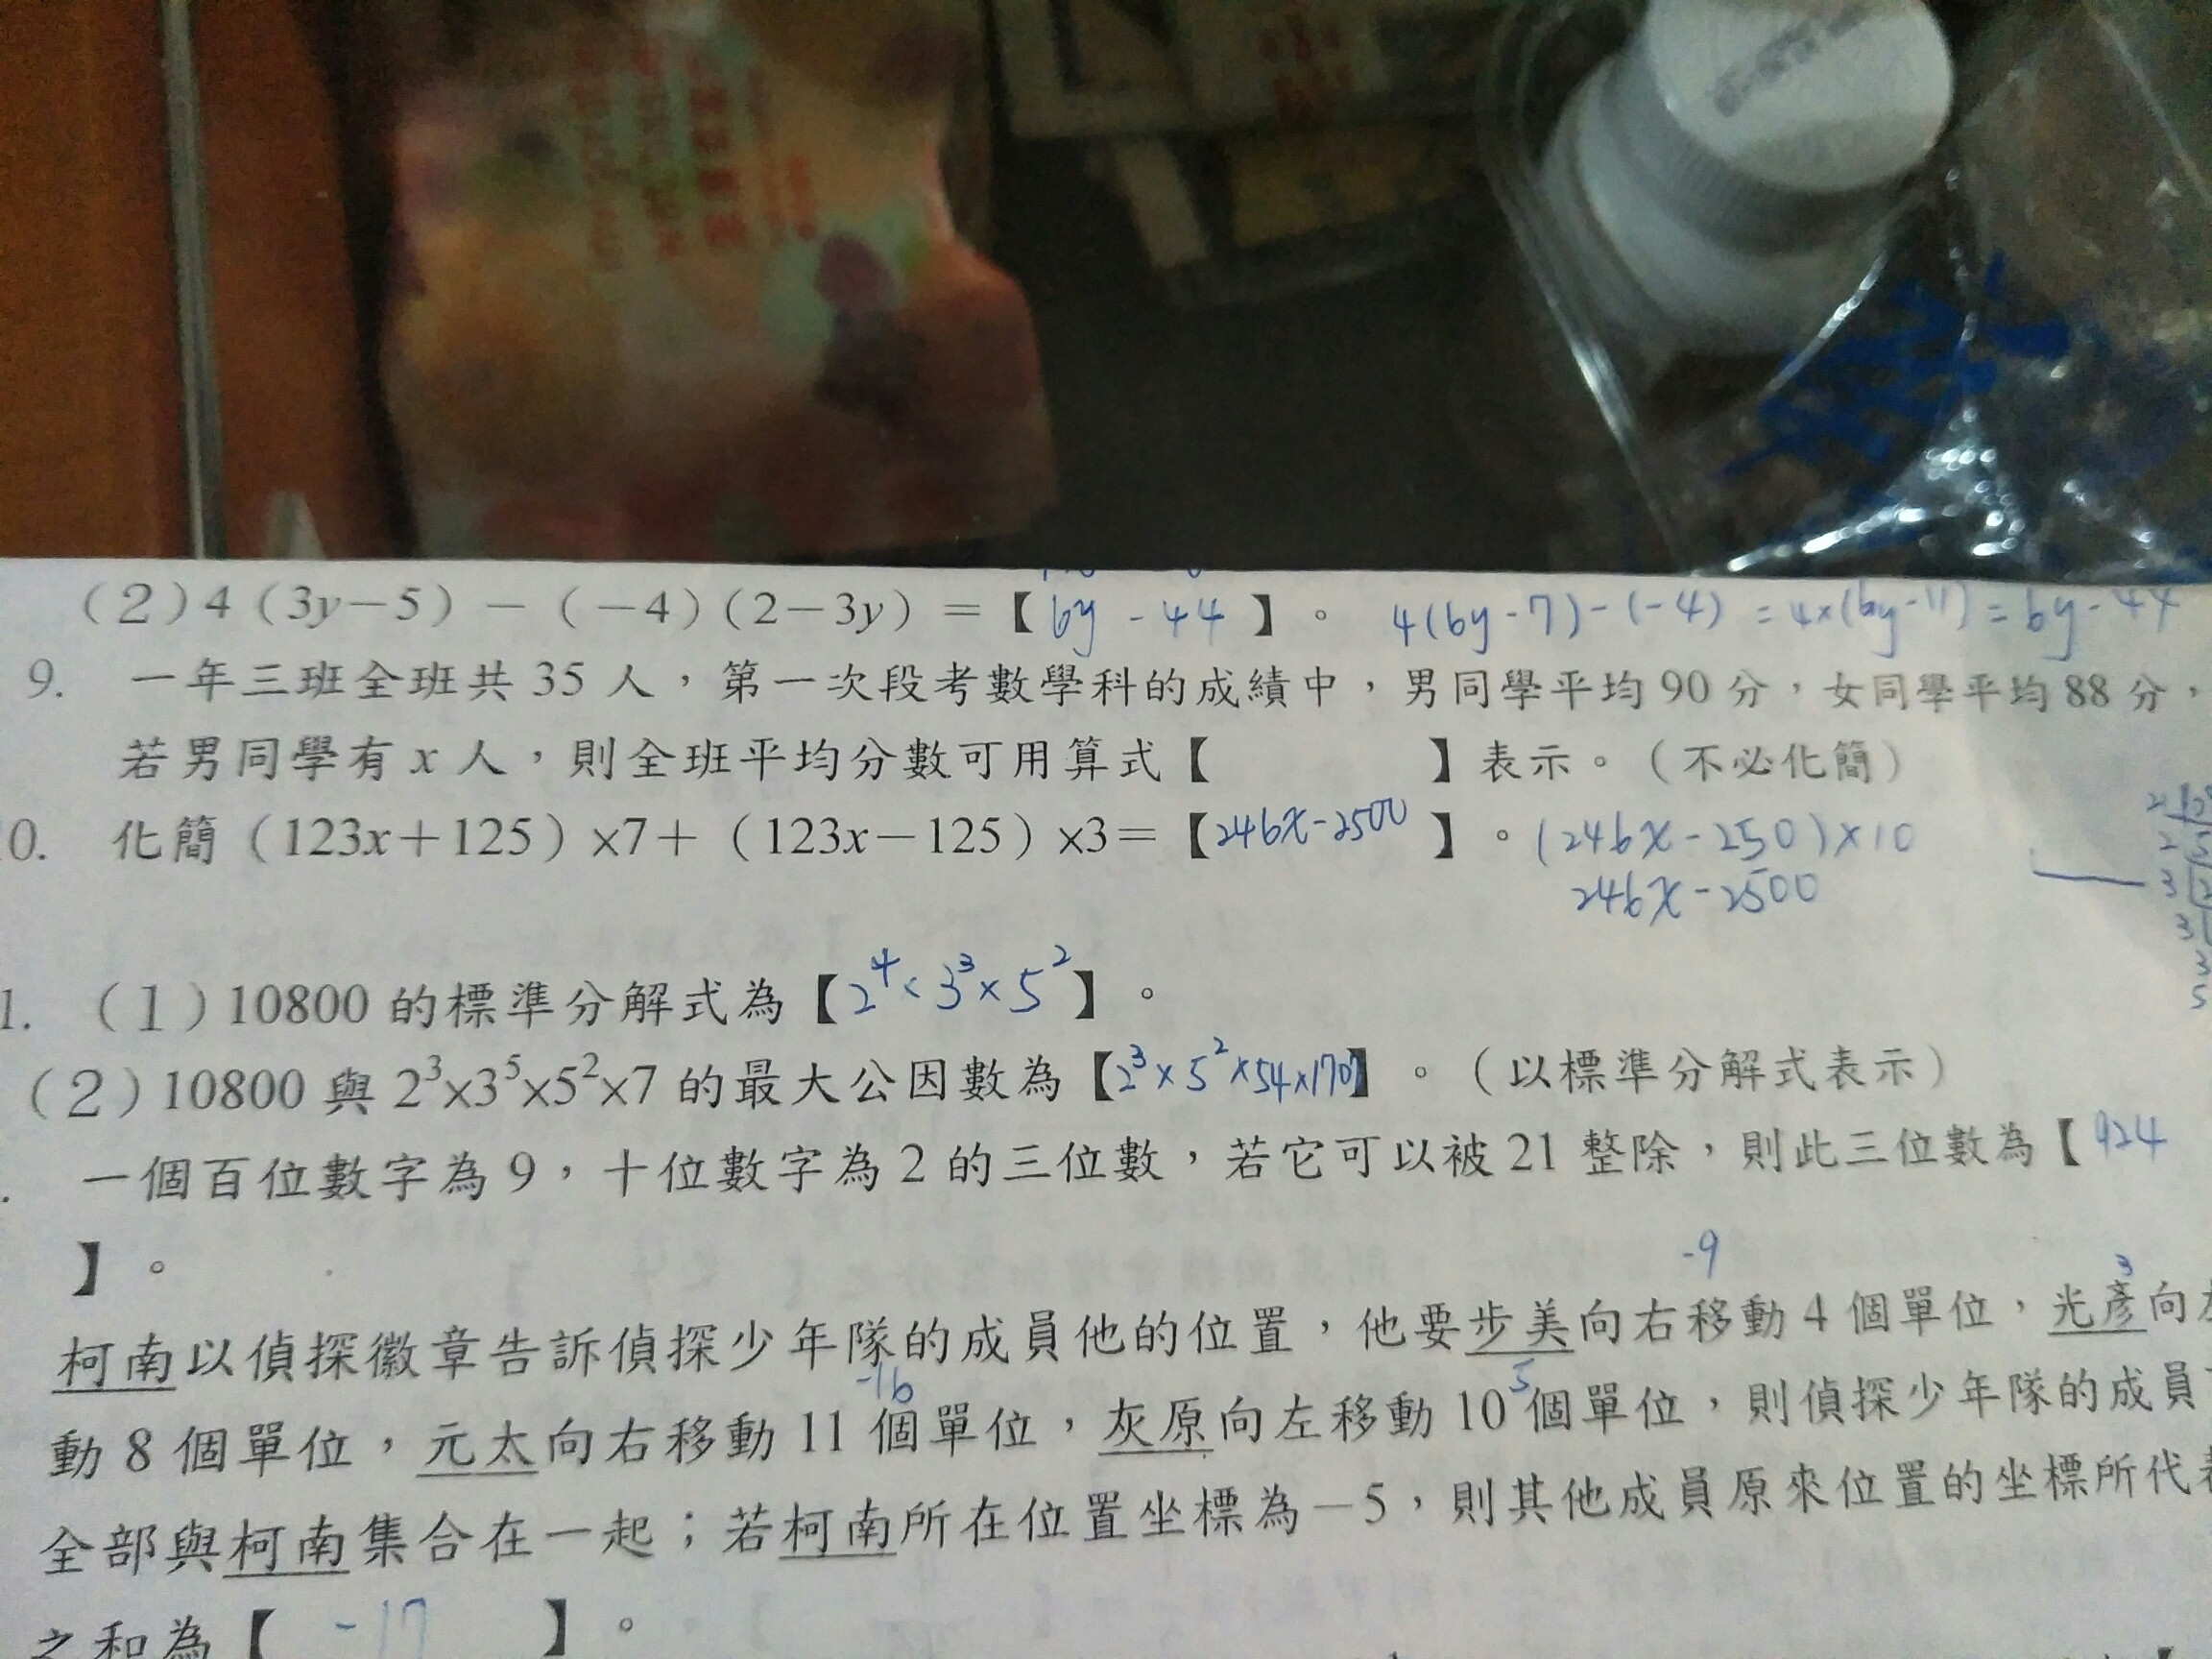 (2) 4 (3y－5) － (－4) (2－3y) =【6y - 44】。 4(6y-7)-(-4) = 4×(6y-11) = 6y-44
9. 一年三班全班共 35 人，第一次段考數學科的成績中，男同學平均 90 分，女同學平均 88 分，
若男同學有 x 人，則全班平均分數可用算式【 】表示。（不必化簡）
0. 化簡 (123x＋125) ×7＋ (123x－125) ×3＝【246x-2500】。(246x-250)×10
246x-2500
1. (1) 10800 的標準分解式為【2⁴×3³×5²】。
(2) 10800 與 2³×3⁵×5²×7 的最大公因數為【2³×5²×54×170】。（以標準分解式表示）
. 一個百位數字為 9，十位數字為 2 的三位數，若它可以被 21 整除，則此三位數為【924
】。
-9 3
柯南以偵探徽章告訴偵探少年隊的成員他的位置，他要步美向右移動 4 個單位，光彥向左
-16 5
動 8 個單位，元太向右移動 11 個單位，灰原向左移動 10 個單位，則偵探少年隊的成員
全部與柯南集合在一起；若柯南所在位置坐標為－5，則其他成員原來位置的坐標所代表
之和為【 -17 】。